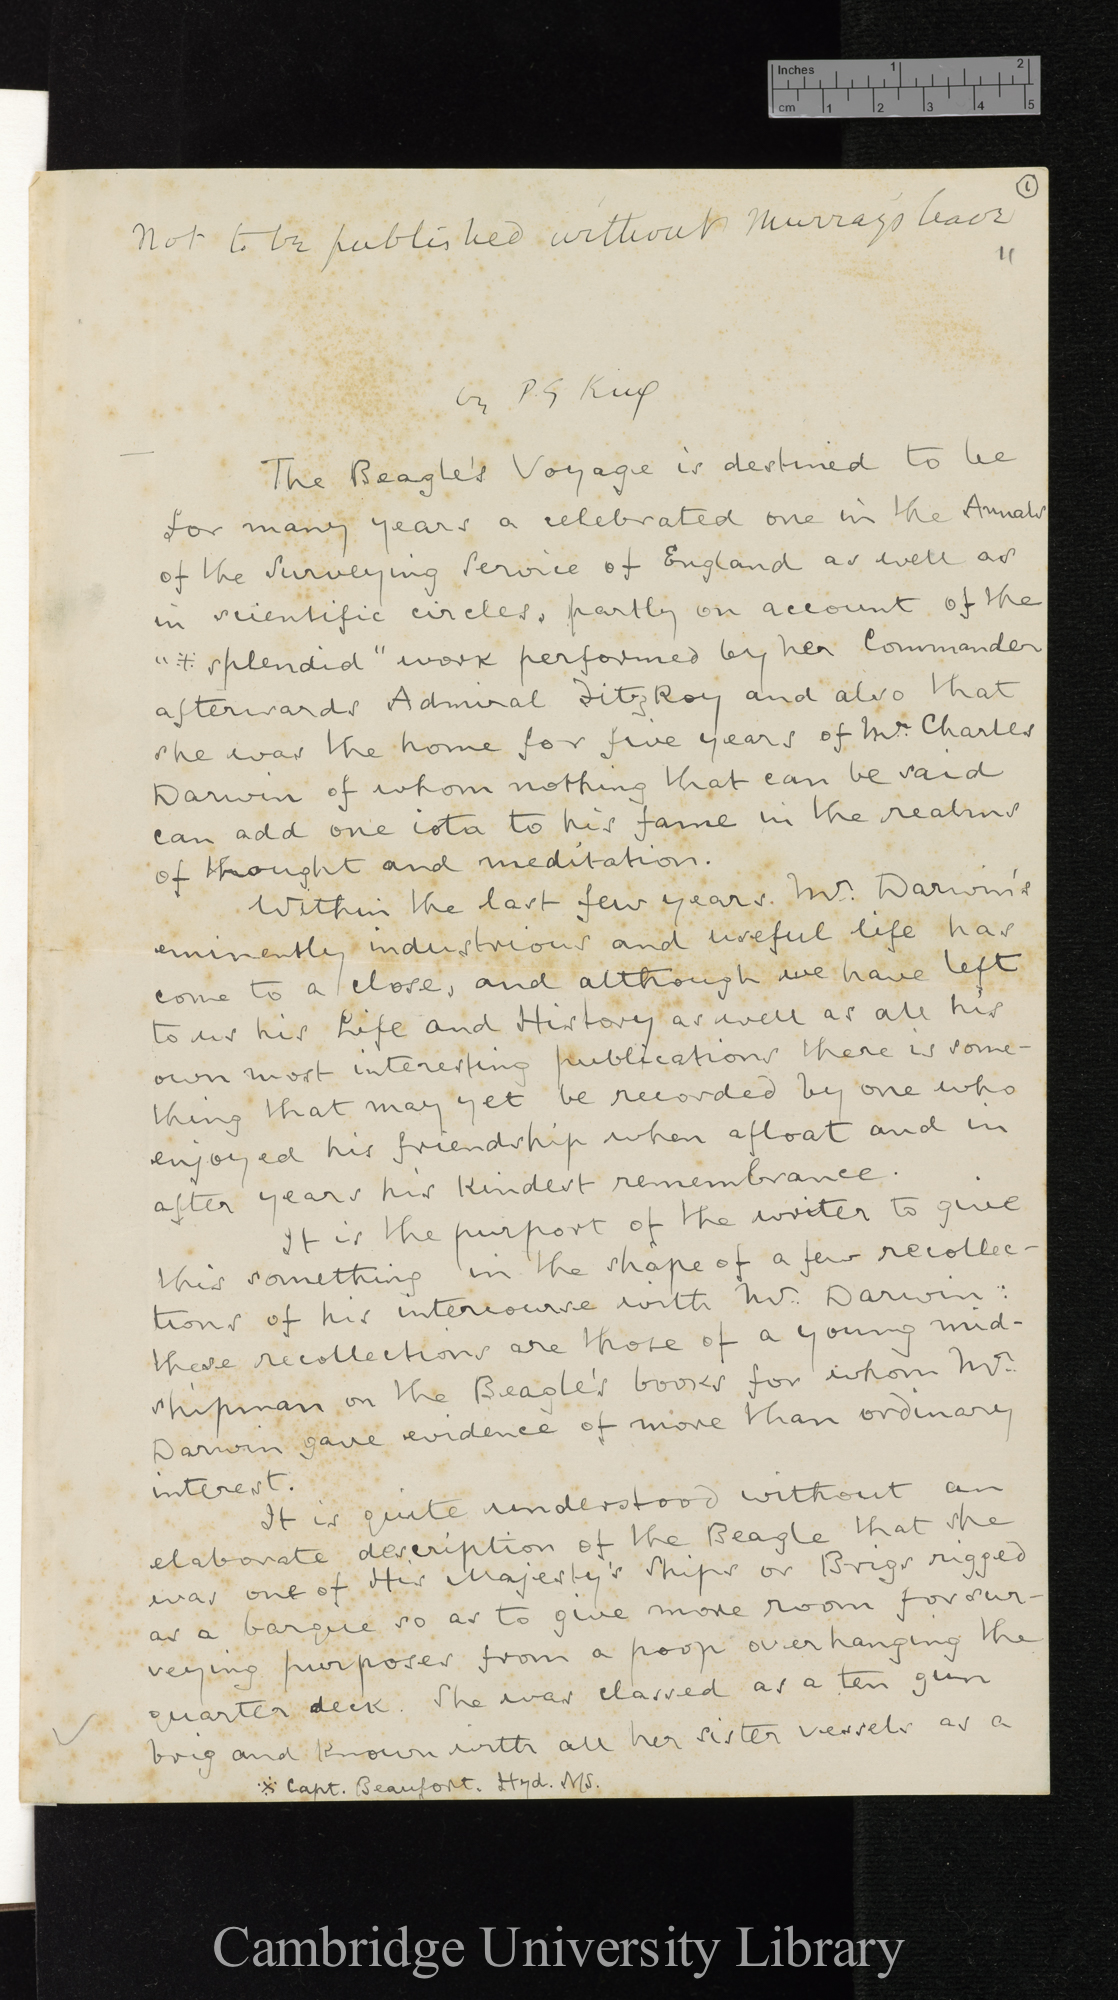 Inches 1 2
cm 1 2 3 4 5
1
Not to be published without Murray's leave
"
by P G King
The Beagle's Voyage is destined to be
for many years a celebrated one in the Annals
of the Surveying Service of England as well as
in scientific circles, partly on account of the
"※ splendid" work performed by her Commander
afterwards Admiral FitzRoy and also that
she was the home for five years of Mr. Charles
Darwin of whom nothing that can be said
can add one iota to his fame in the realms
of thought and meditation.
Within the last few years. Mr. Darwin's
eminently industrious and useful life has
come to a close, and although we have left
to us his Life and History as well as all his
own most interesting publications there is some-
thing that may yet be recorded by one who
enjoyed his friendship when afloat and in
after years his kindest remembrance.
It is the purport of the writer to give
this something in the shape of a few recollec-
tions of his intercourse with Mr. Darwin:
these recollections are those of a young mid-
shipman on the Beagle's books for whom Mr.
Darwin gave evidence of more than ordinary
interest.
It is quite understood without an
elaborate description of the Beagle that she
was one of His Majesty's Ships or Brigs rigged
as a barque so as to give more room for sur-
veying purposes from a poop overhanging the
quarter deck. She was classed as a ten gun
brig and known with all her sister vessels as a
※ Capt. Beaufort. Hyd. MS.
Cambridge University Library